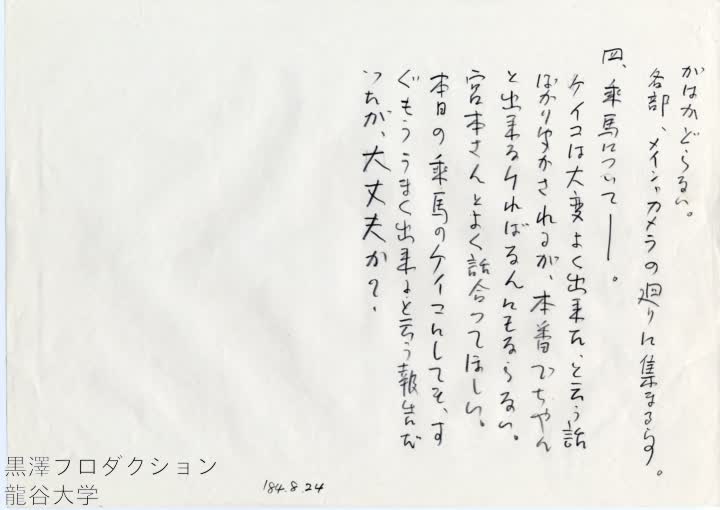 がはかどらない。
各部、メインカメラの廻りに集まるらす。
四、乗馬について——。
ケイコは大変よく出来た、と云う話
ばかりゆかされるが、本番でちゃん
と出来なければなんにもならない。
宮本さんとよく話合ってほしい。
本日の乗馬のケイコにしても、す
ぐもううまく出来ると云う報告だ
ったが、大丈夫か?.
'84.8.24
黒澤プロダクション
龍谷大学